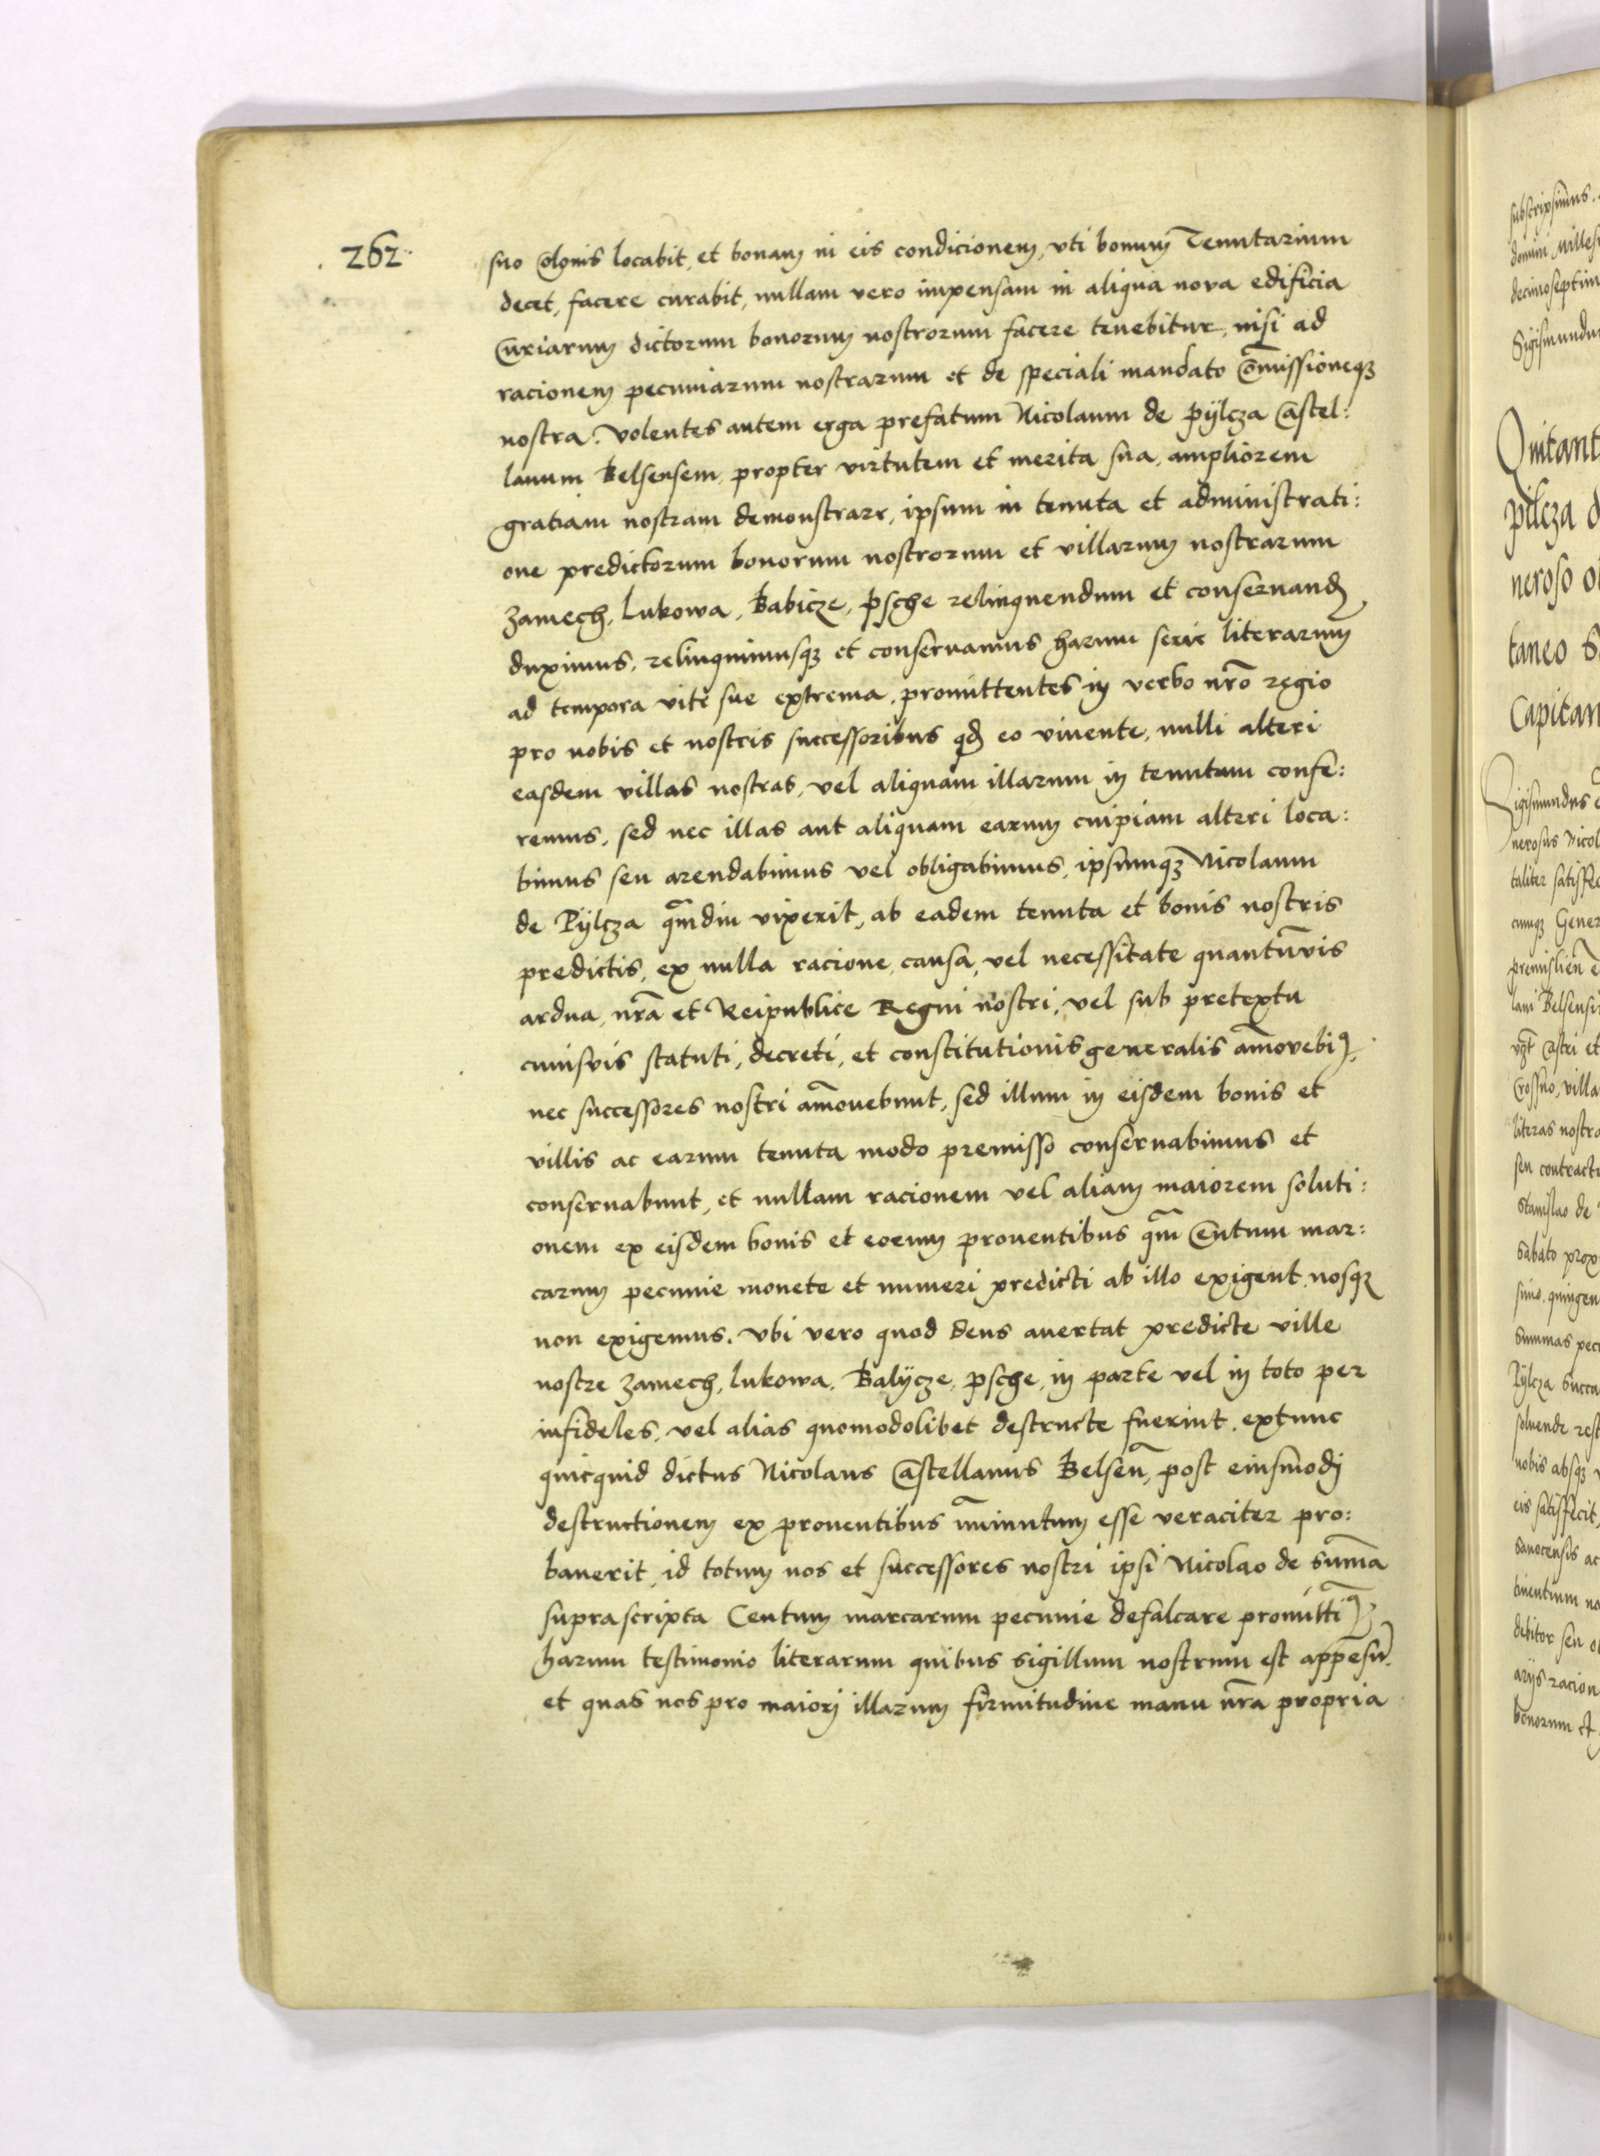 262
suo Colonis locabit, et bonam in eis condicionem, vti bonum Tenutarium
decet, facere curabit, nullam vero impensam in aliqua nova edificia
Curiarum dictorum bonorum nostrorum facere tenebitur, nisi ad
racionem pecuniarum nostrarum et de speciali mandato Com̄issioneqꝫ
nostra. Volentes autem erga prefatum Nicolaum de Pÿlcza Castel:
lanum Belsensem, propter virtutem et merita sua, ampliorem
gratiam nostram demonstrare, ipsum in tenuta et administrati:
one predictorum bonorum nostrorum et villarum nostrarum
Zamech, Lukowa, Babicze, Psche relinquendum et conseruand
duximus, relinquimusqꝫ et conseruamus harum serie literarum
ad tempora vite sue extrema, promittentes in verbo nr̄o regio
pro nobis et nostris successoribus qd eo viuente, nulli alteri
easdem villas nostras, vel aliquam illarum in tenutam confe:
remus, sed nec illas aut aliquam earum cuipiam alteri loca:
bimus seu arendabimus vel obligabimus, ipsumqꝫ Nicolaum
de Pÿlcza qm̄diu vixerit, ab eadem tenuta et bonis nostris
predictis, ex nulla racione, causa, vel necessitate quantūvis
ardua, nr̄a et Reipublice Regni nostri, vel sub pretextu
cuiusvis statuti, decreti, et constitutionis generalis am̄ovebi,
nec successores nostri am̄ouebunt, sed illum in eisdem bonis et
villis ac earum tenuta modo premisso conseruabimus et
conseruabunt, et nullam racionem vel aliam maiorem soluti:
onem ex eisdem bonis et eorum prouentibus qm̄ Centum mar:
carum pecunie monete et numeri predicti ab illo exigent nosqꝫ
non exigemus. Vbi vero quod deus auertat predicte ville
nostre Zamech, Lukowa, Balÿcze, Psche, in parte vel in toto per
infideles, vel alias quomodolibet destructe fuerint, extunc
quicquid dictus Nicolaus Castellanus Belsen̄, post eiusmodi
destructionem ex prouentibus im̄inutum esse veraciter pro:
bauerit, id totum nos et successores nostri ipsi Nicolao de sum̄a
suprascripta Centum marcarum pecunie defalcare promitti
harum testimonio literarum quibus sigillum nostrum est appensū
et quas nos pro maiori illarum firmitudine manu nr̄a propria